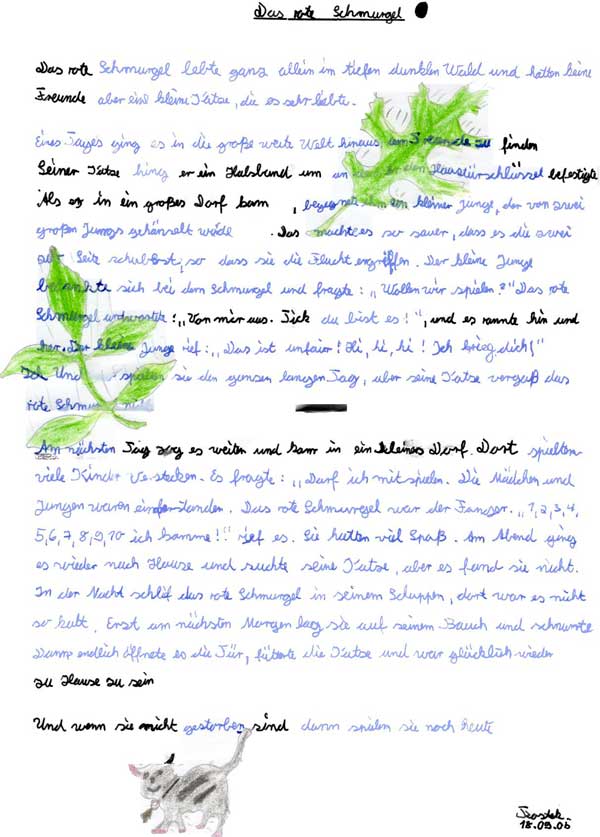 Das rote Schmurgel
Das rote Schmurgel lebte ganz allein im tiefen dunklen Wald und hatten keine
Freunde aber eine kleine Katze, die es sehr liebte.
Eines Tages ging es in die große weite Welt hinaus, um Freunde zu finden
Seiner Katze hing er ein Halsband um an dem er den Haustürschlüssel befestigte
Als er in ein großes Dorf kam, begegnete ihm ein kleiner Junge, der von zwei
großen Jungs gehänselt wurde. Das machte es so sauer, dass es die zwei
zur Seite schubst, so dass sie die Flucht ergriffen. Der kleine Junge
bedankte sich bei dem Schmurgel und fragte: „Wollen wir spielen?" Das rote
Schmurgel antwortete: „Von mir aus. Tick du bist es!", und es rannte hin und
her. Der kleine Junge rief: „Das ist unfair! Hi, hi, hi! Ich krieg dich!"
Und spielten sie den ganzen langen Tag, aber seine Katze vergaß das
rote Schmurgel nicht
Am nächsten Tag zog es weiter und kam in ein kleines Dorf. Dort spielten
viele Kinder verstecken. Es fragte: „Darf ich mit spielen. Die Mädchen und
Jungen waren einverstanden. Das rote Schmurgel war der Fänger. „1, 2, 3, 4,
5, 6, 7, 8, 9, 10 ich komme!" rief es. Sie hatten viel Spaß. Am Abend ging
es wieder nach Hause und suchte seine Katze, aber es fand sie nicht.
In der Nacht schlief das rote Schmurgel in seinem Schuppen, dort war es nicht
so kalt. Erst am nächsten Morgen lag sie auf seinem Bauch und schnurrte
Dann endlich öffnete es die Tür, fütterte die Katze und war glücklich wieder
zu Hause zu sein
Und wenn sie nicht gestorben sind dann spielen sie noch heute
18.09.06